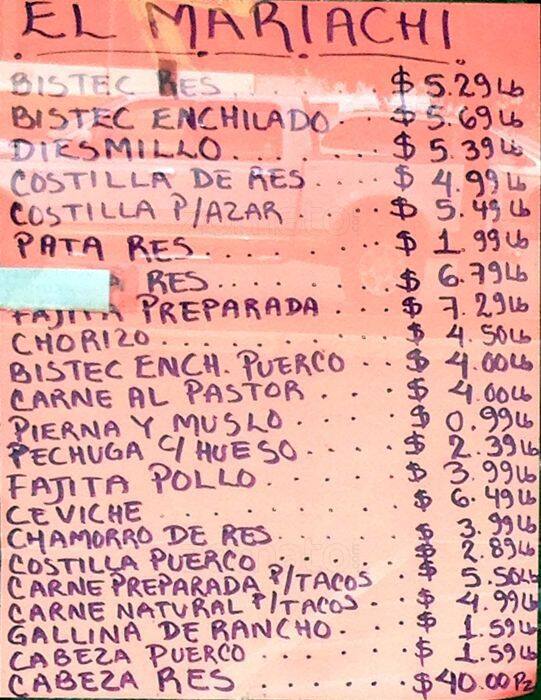 EL MARIACHI
BISTEC RES . . . . . . . $ 5.29 Lb
BISTEC ENCHILADO . . . $ 5.69 Lb
DIESMILLO . . . . . . . $ 5.39 Lb
COSTILLA DE RES . . . . $ 4.99 Lb
COSTILLA P/AZAR . . . . $ 5.49 Lb
PATA RES . . . . . . . $ 1.99 Lb
RES . . . . . . . $ 6.79 Lb
FAJITA PREPARADA . . . . $ 7.29 Lb
CHORIZO . . . . . . . . $ 4.50 Lb
BISTEC ENCH. PUERCO . . $ 4.00 Lb
CARNE AL PASTOR . . . . $ 4.00 Lb
PIERNA Y MUSLO . . . . . $ 0.99 Lb
PECHUGA C/ HUESO . . . . $ 2.39 Lb
FAJITA POLLO . . . . . . $ 3.99 Lb
CEVICHE . . . . . . . . $ 6.49 Lb
CHAMORRO DE RES . . . . $ 3.99 Lb
COSTILLA PUERCO . . . . $ 2.89 Lb
CARNE PREPARADA P/TACOS . . $ 5.50 Lb
CARNE NATURAL P/TACOS . . $ 4.99 Lb
GALLINA DE RANCHO . . . $ 1.59 Lb
CABEZA PUERCO . . . . . $ 1.59 Lb
CABEZA RES . . . . . . . $40.00 Pz